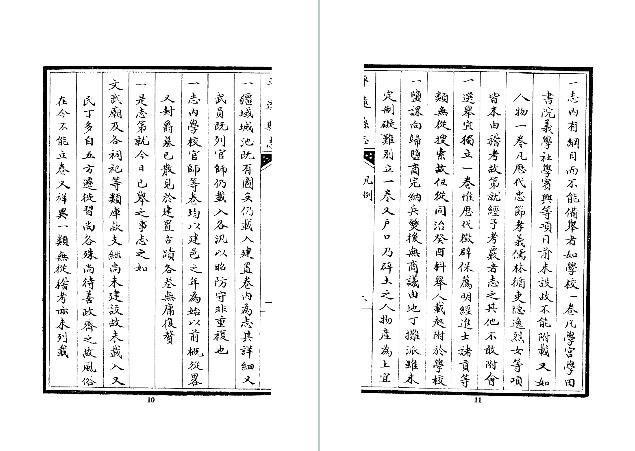 一志内有綱目而不能備舉者如學校一卷凡學宮學田
書院義學社學賓興等項目前未設故不能附載又如
人物一卷凡歷代忠節孝義儒林循吏隱逸烈女等項
皆本由稽考故第就經子考覈者志之其他不敢附會
一選舉宜獨立一卷惟歷代徵辟保薦明經進士諸貢等
類無從搜索故但從同治癸酉科舉人載起附於學校
一鹽課向歸鹽商完納兵燹後無商議由地丁攤派雖未
定制礙難別立一卷又户口乃碎土之人物產為土宜
凡例
11
一疆域城池既有圖矣仍載入建置卷内為志其詳細又
武員既列官師仍載入各汛以昭防守非重複也
一志内學校官師等卷均以建邑之年為始以前概從畧
又封爵墓已散見於建置古蹟各卷無庸復贅
一是志第就今日已舉之事志之如
文武廟及各祠祀等類庫款支絀尚未建設故未載入又
民丁多自五方遷徙習尚各殊尚待善政齊之故風俗
在今不能立卷又祥異一類無從稽考亦未列載
10